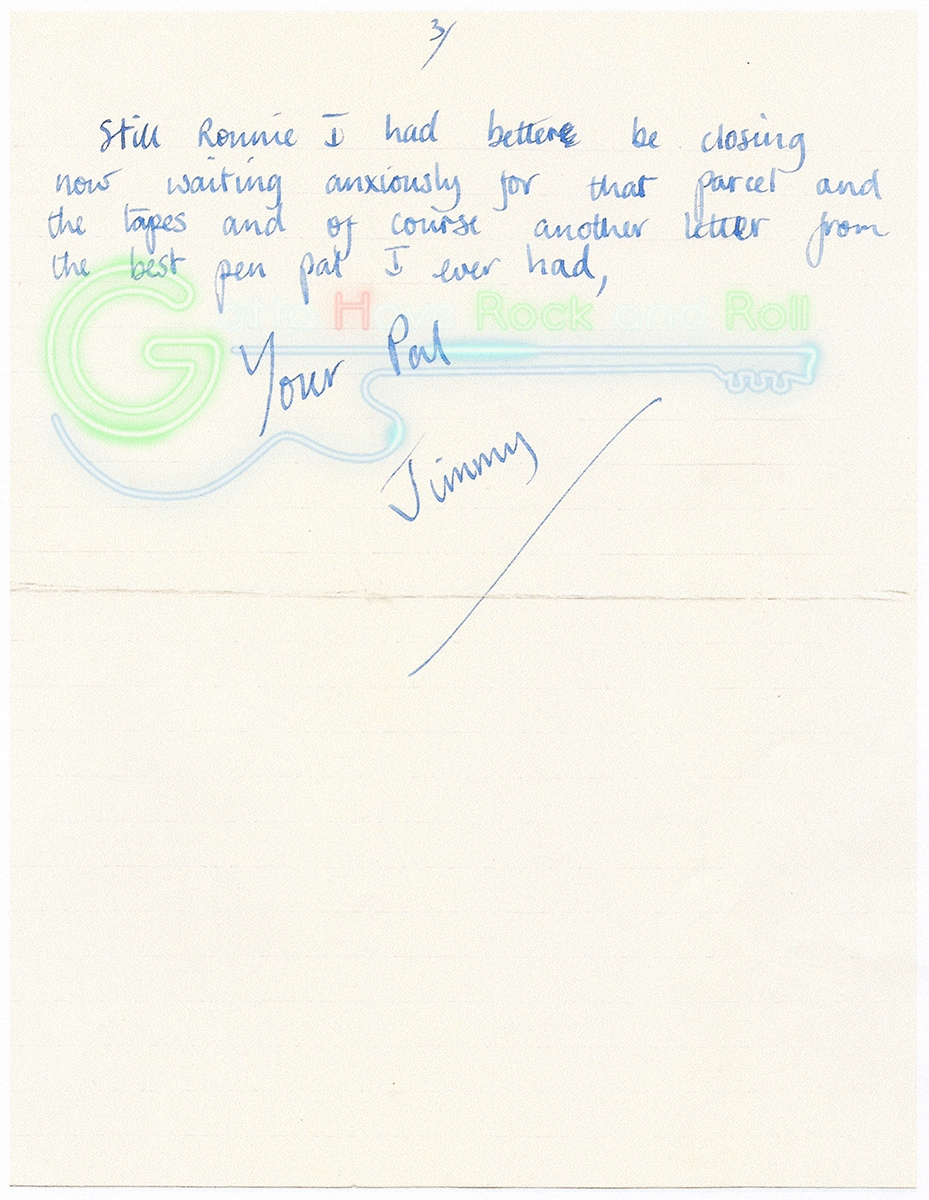 3/
Still Ronnie I had better be closing
now waiting anxiously for that parcel and
the tapes and of course another letter from
the best pen pal I ever had,
G H Rock Roll
Your Pal
Jimmy